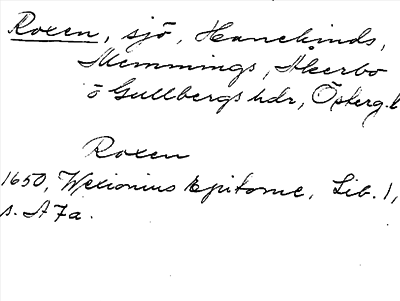 Roxen, sjö, Hanekinds,
Memmings, Åkerbo
o Gullbergs hdr, Österg.l
Roxen
1650, Wexionius Epitome, Lib. 1,
s. A7a.